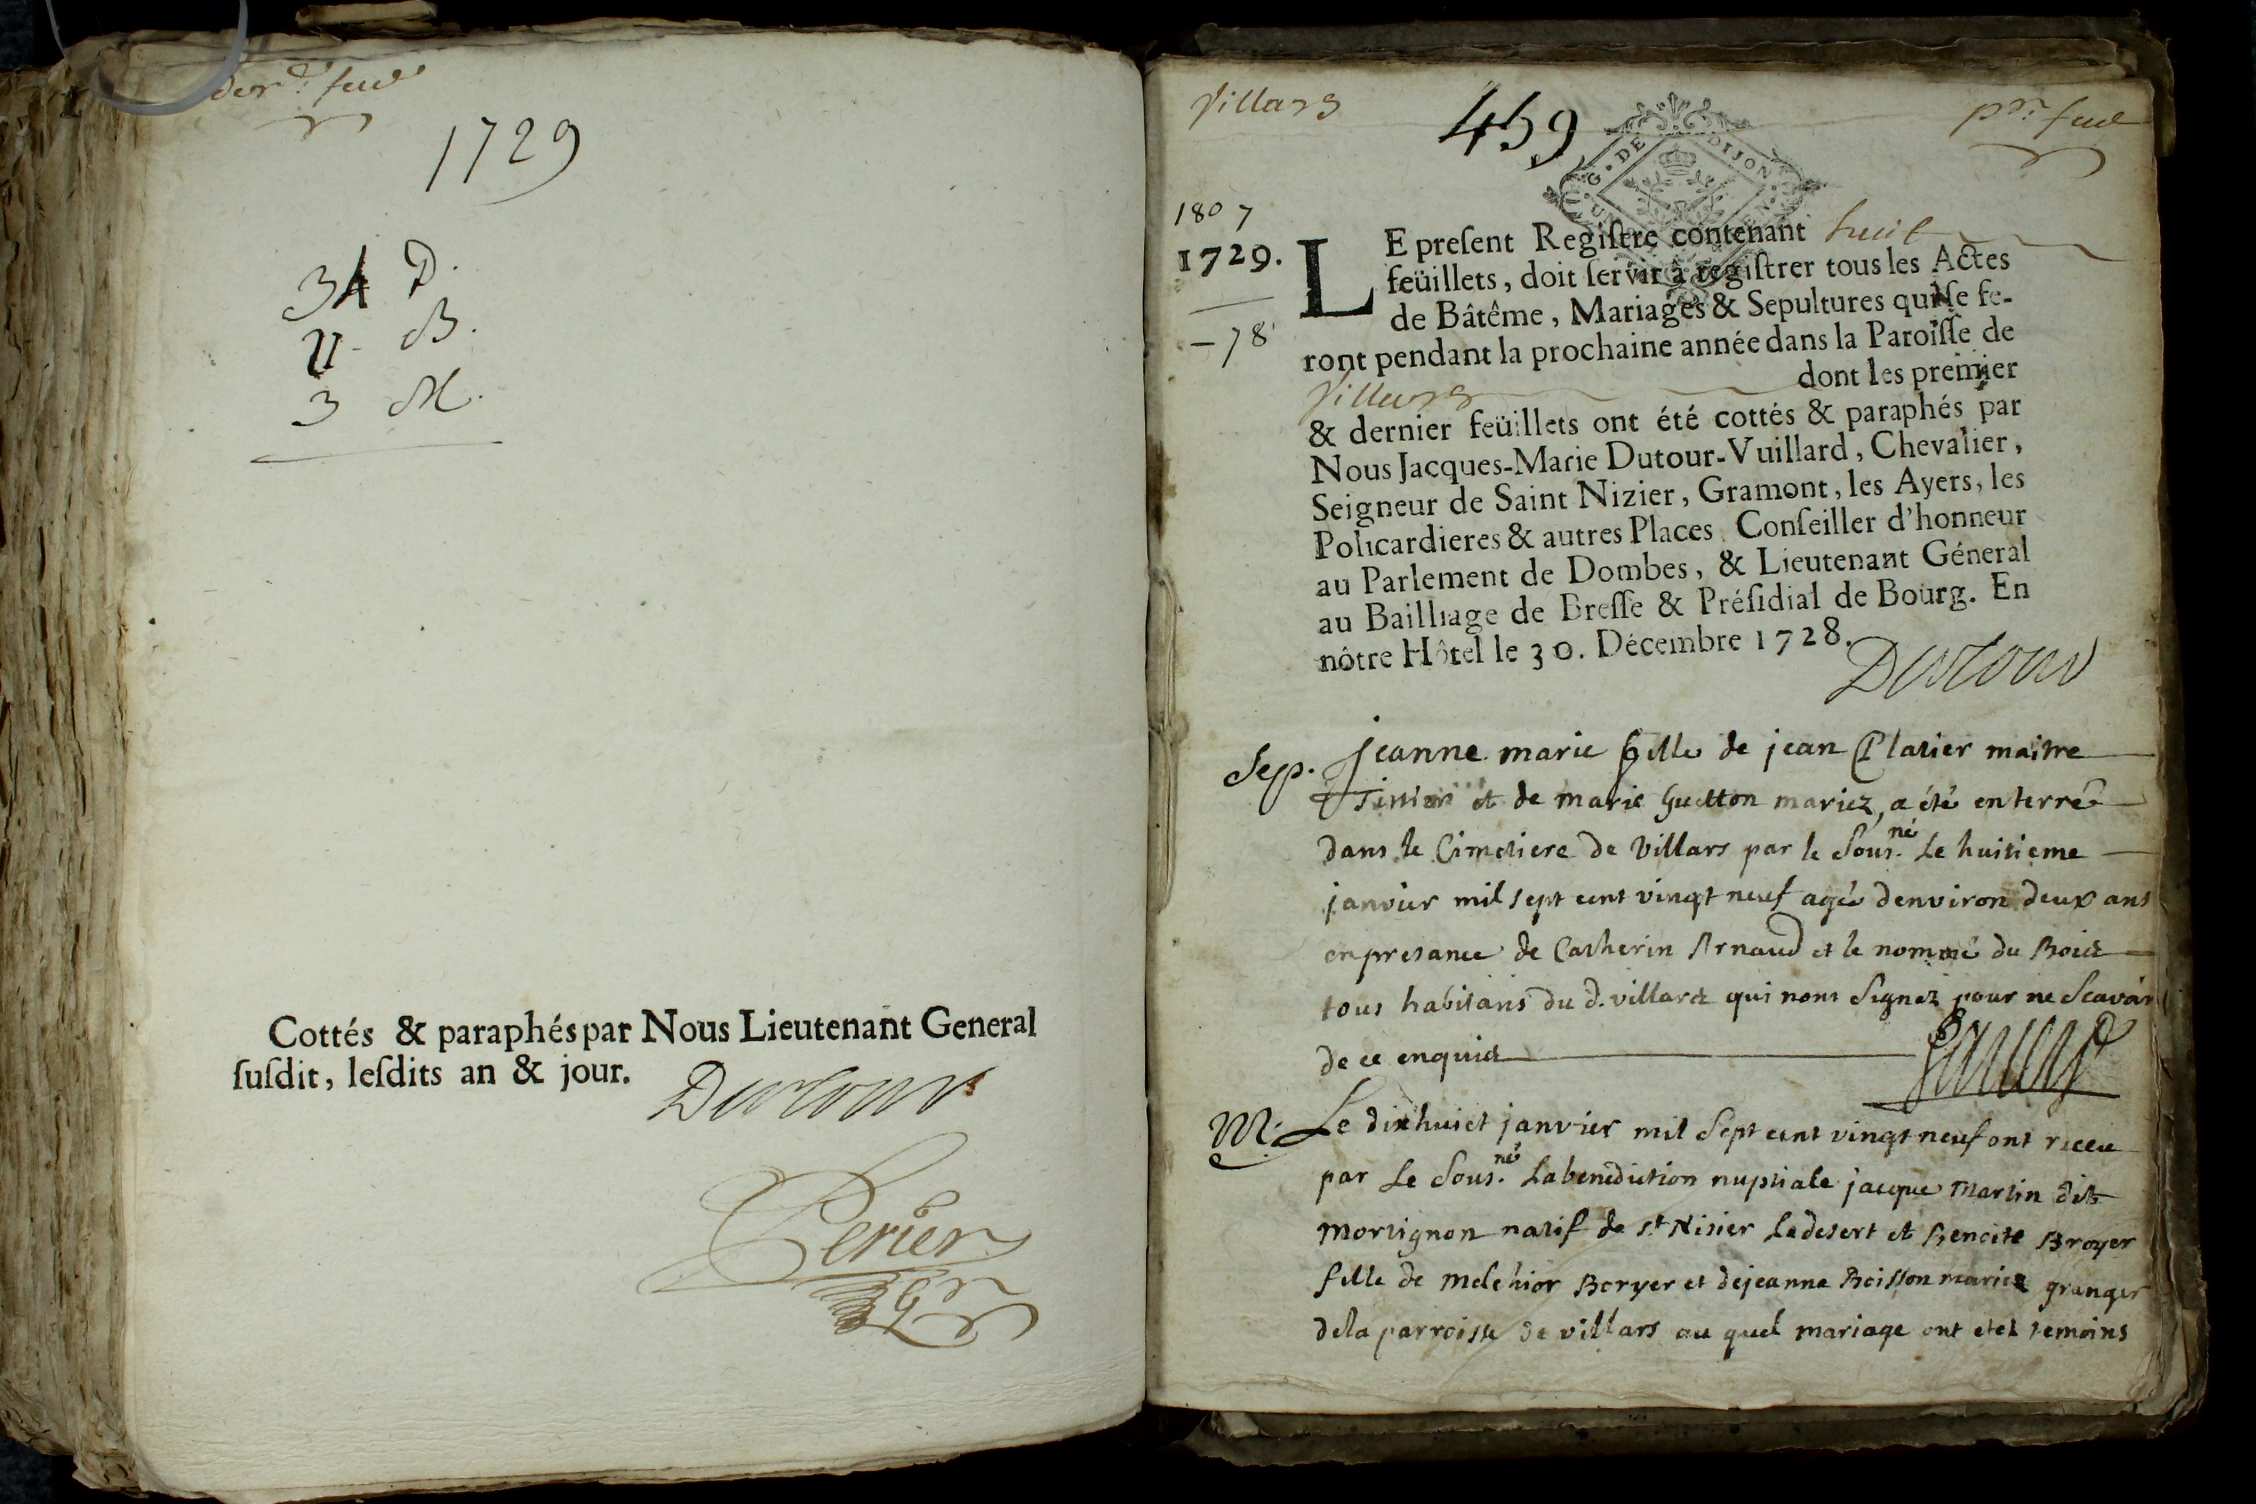 der.r feul
1729
34 D.
11. B.
3 M.
Cottés & paraphés par Nous Lieutenant General
suſdit, leſdits an & jour.
Dutour
Perier
Villars
459
pr. feul
G. DE DIJON
1807
1729.
78
LE preſent Regiſtre contenant huit
feüillets, doit ſervir à regiſtrer tous les Actes
de Bâtême, Mariages & Sepultures qui ſe fe-
ront pendant la prochaine année dans la Paroiſſe de
Villars dont les premier
& dernier feüillets ont été cottés & paraphés par
Nous Jacques-Marie Dutour-Vuillard, Chevalier,
Seigneur de Saint Nizier, Gramont, les Ayers, les
Policardieres & autres Places, Conſeiller d'honneur
au Parlement de Dombes, & Lieutenant Géneral
au Bailliage de Breſſe & Préſidial de Bourg. En
nôtre Hôtel le 30. Décembre 1728.
Dutour
Sep. Jeanne marie fille de jean Platier maitre
et de marie Guitton mariez, a été enterrée
dans le Cimetiere de Villars par le Sous.né Le huitieme
janvier mil sept cent vingt neuf agée denviron deux ans
en presance de Catherin Arnaud et le nommé du Bois
tous habitans du d. villars qui nont Signez pour ne Scavoir
de ce enquis
M. Le dix huict janvier mil Sept cent vingt neuf ont receu
par Le Sous.né La benediction nuptiale jacque Martin dit
Mortignon natif de st Nisier Le desert et Benoite Broyer
fille de Melchior Boryer et de jeanne Boisson mariez granger
de la parroisse de villars au quel mariage ont etez temoins